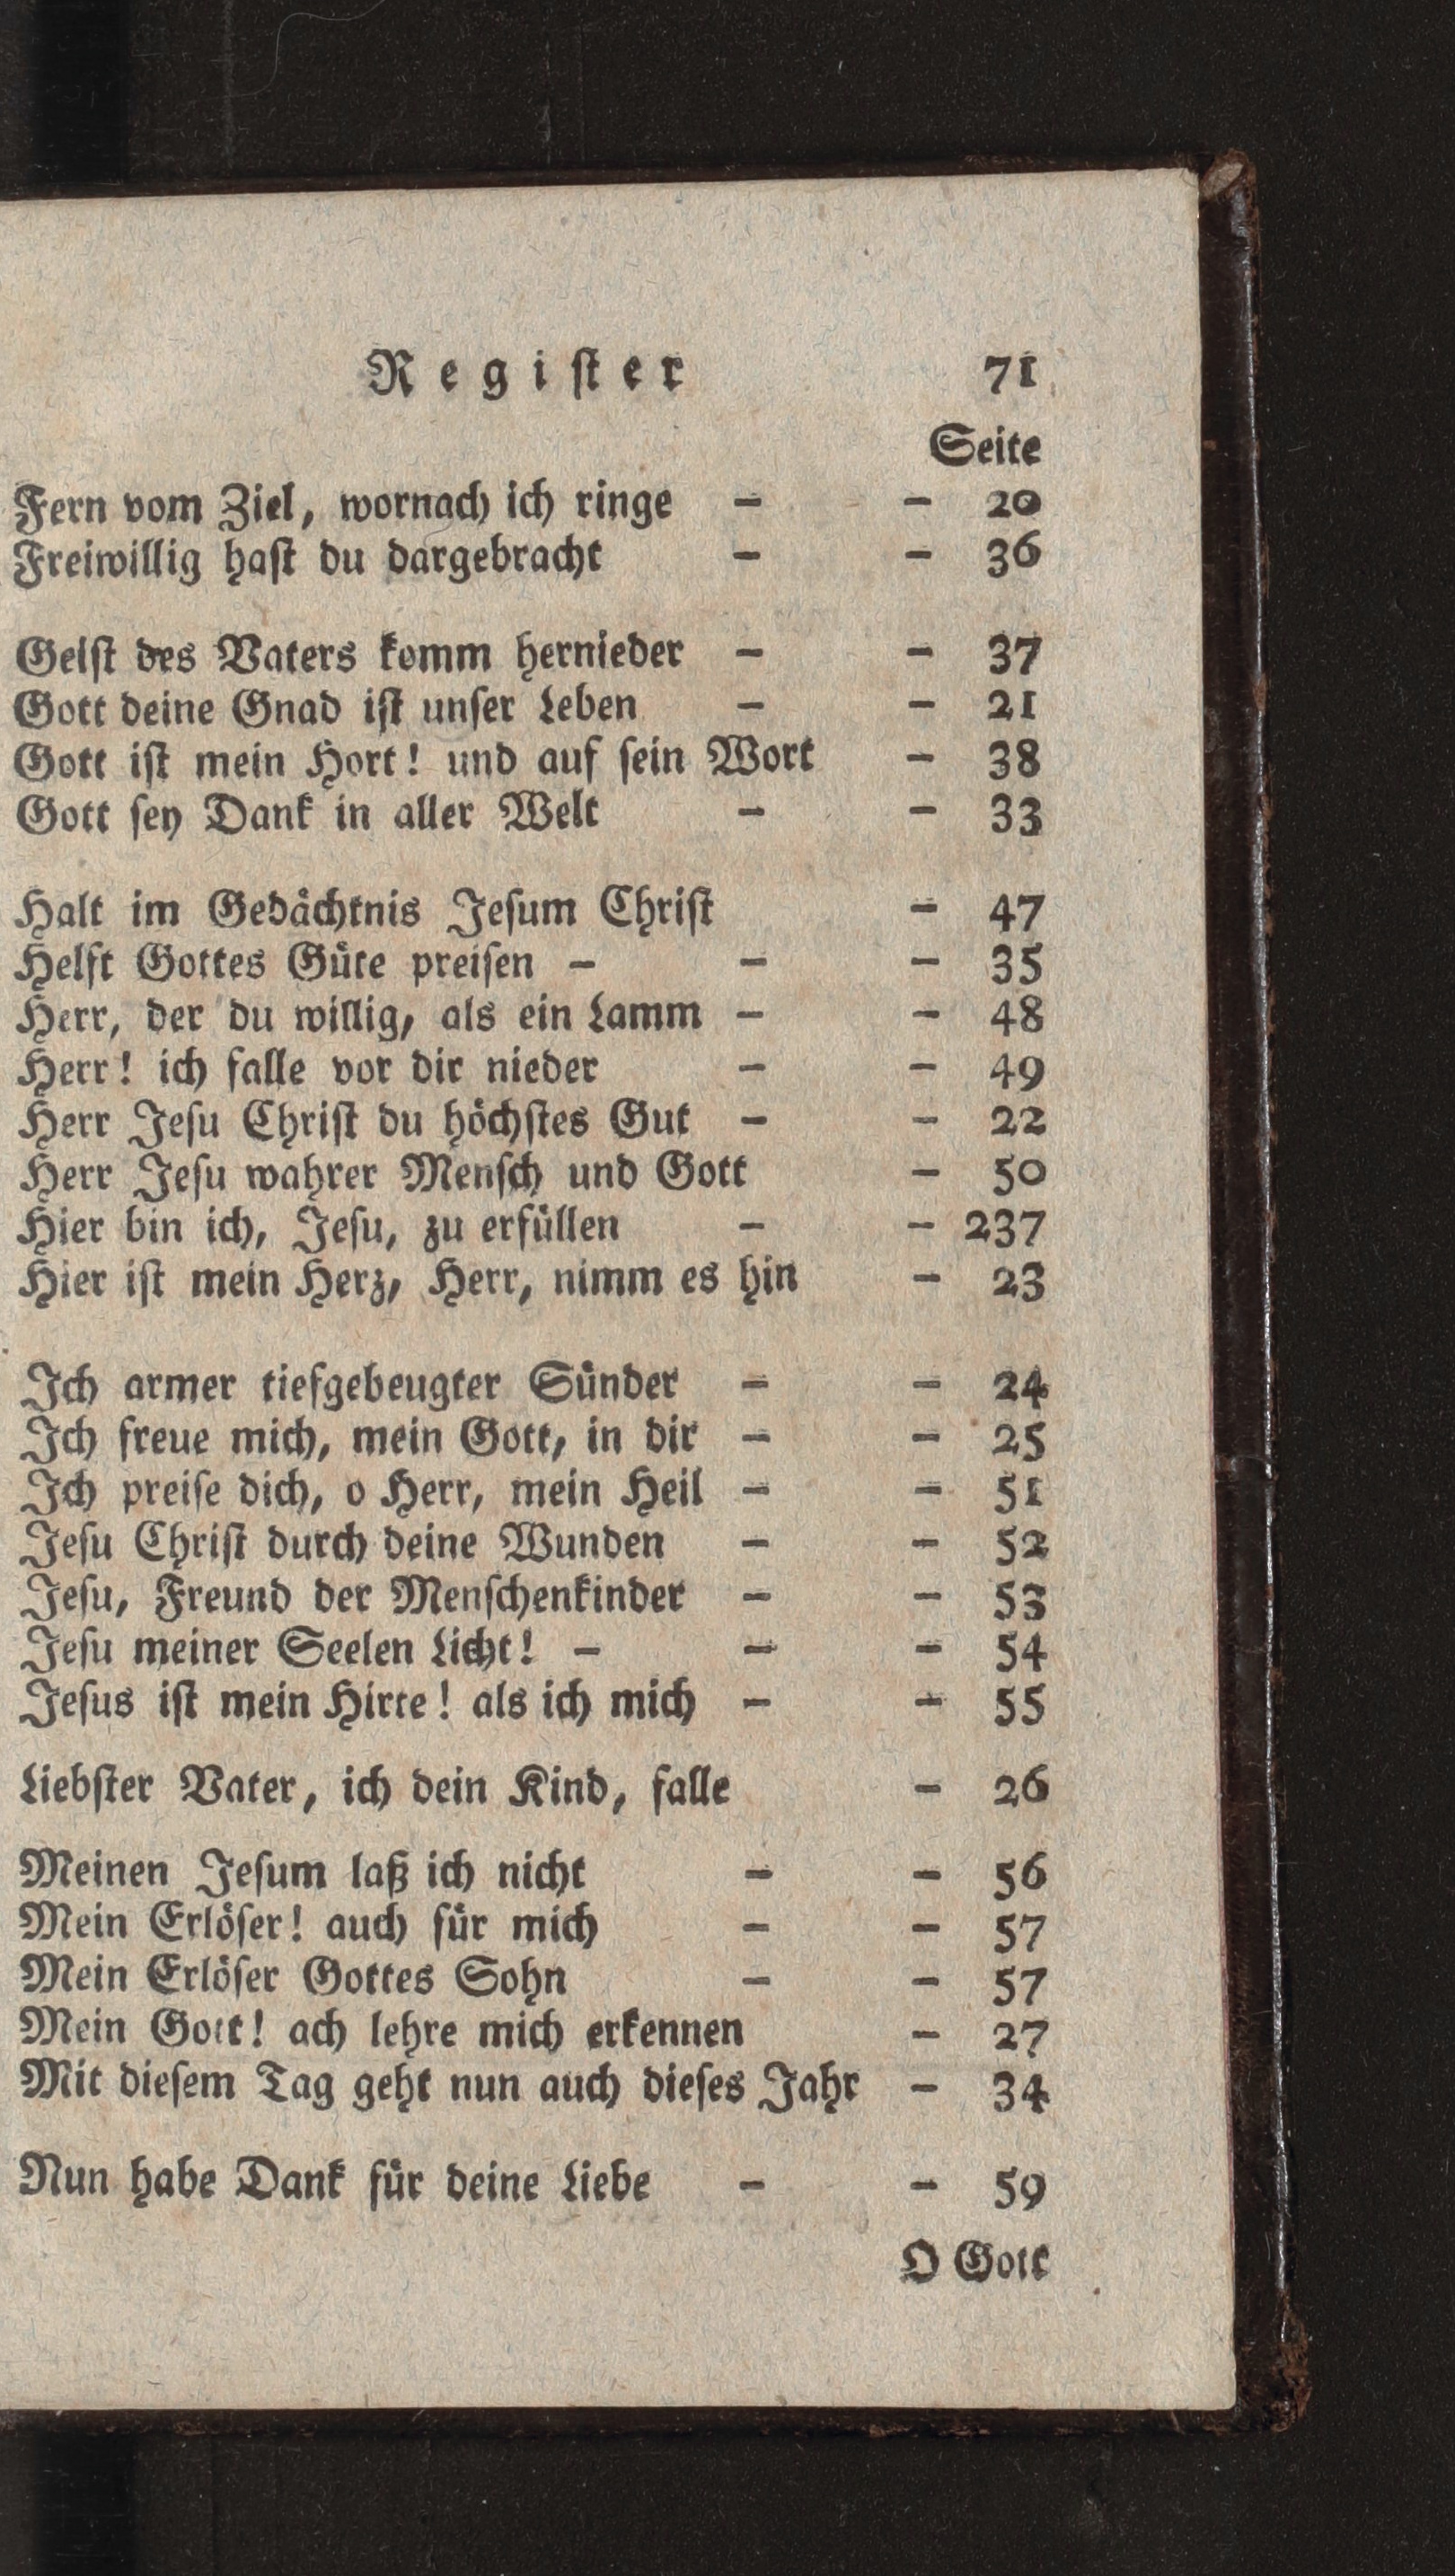 Regiſter 71
Seite
Fern vom Ziel, wornach ich ringe - - 20
Freiwillig haſt du dargebracht - - 36
Geiſt des Vaters komm hernieder - - 37
Gott deine Gnad iſt unſer Leben - - 21
Gott iſt mein Hort! und auf ſein Wort - 38
Gott ſey Dank in aller Welt - - 33
Halt im Gedächtnis Jeſum Chriſt - 47
Helft Gottes Güte preiſen - - - 35
Herr, der du willig, als ein Lamm - - 48
Herr! ich falle vor dir nieder - - 49
Herr Jeſu Chriſt du höchſtes Gut - - 22
Herr Jeſu wahrer Menſch und Gott - 50
Hier bin ich, Jeſu, zu erfüllen - - 237
Hier iſt mein Herz, Herr, nimm es hin - 23
Ich armer tiefgebeugter Sünder - - 24
Ich freue mich, mein Gott, in dir - - 25
Ich preiſe dich, o Herr, mein Heil - - 51
Jeſu Chriſt durch deine Wunden - - 52
Jeſu, Freund der Menſchenkinder - - 53
Jeſu meiner Seelen Licht! - - - 54
Jeſus iſt mein Hirte! als ich mich - - 55
Liebſter Vater, ich dein Kind, falle - 26
Meinen Jeſum laß ich nicht - - 56
Mein Erlöſer! auch für mich - - 57
Mein Erlöſer Gottes Sohn - - 57
Mein Gott! ach lehre mich erkennen - 27
Mit dieſem Tag geht nun auch dieſes Jahr - 34
Nun habe Dank für deine Liebe - - 59
O Gott